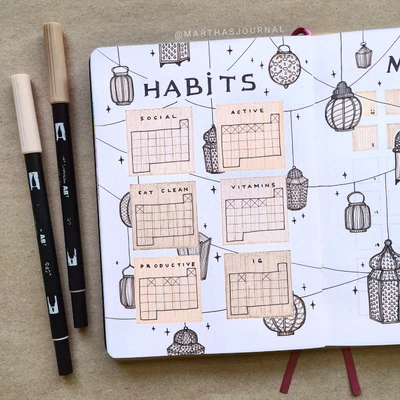 @MARTHASJOURNAL
HABITS
M
SOCIAL
ACTIVE
EAT CLEAN
VITAMINS
PRODUCTIVE
IG
ABT
ABT